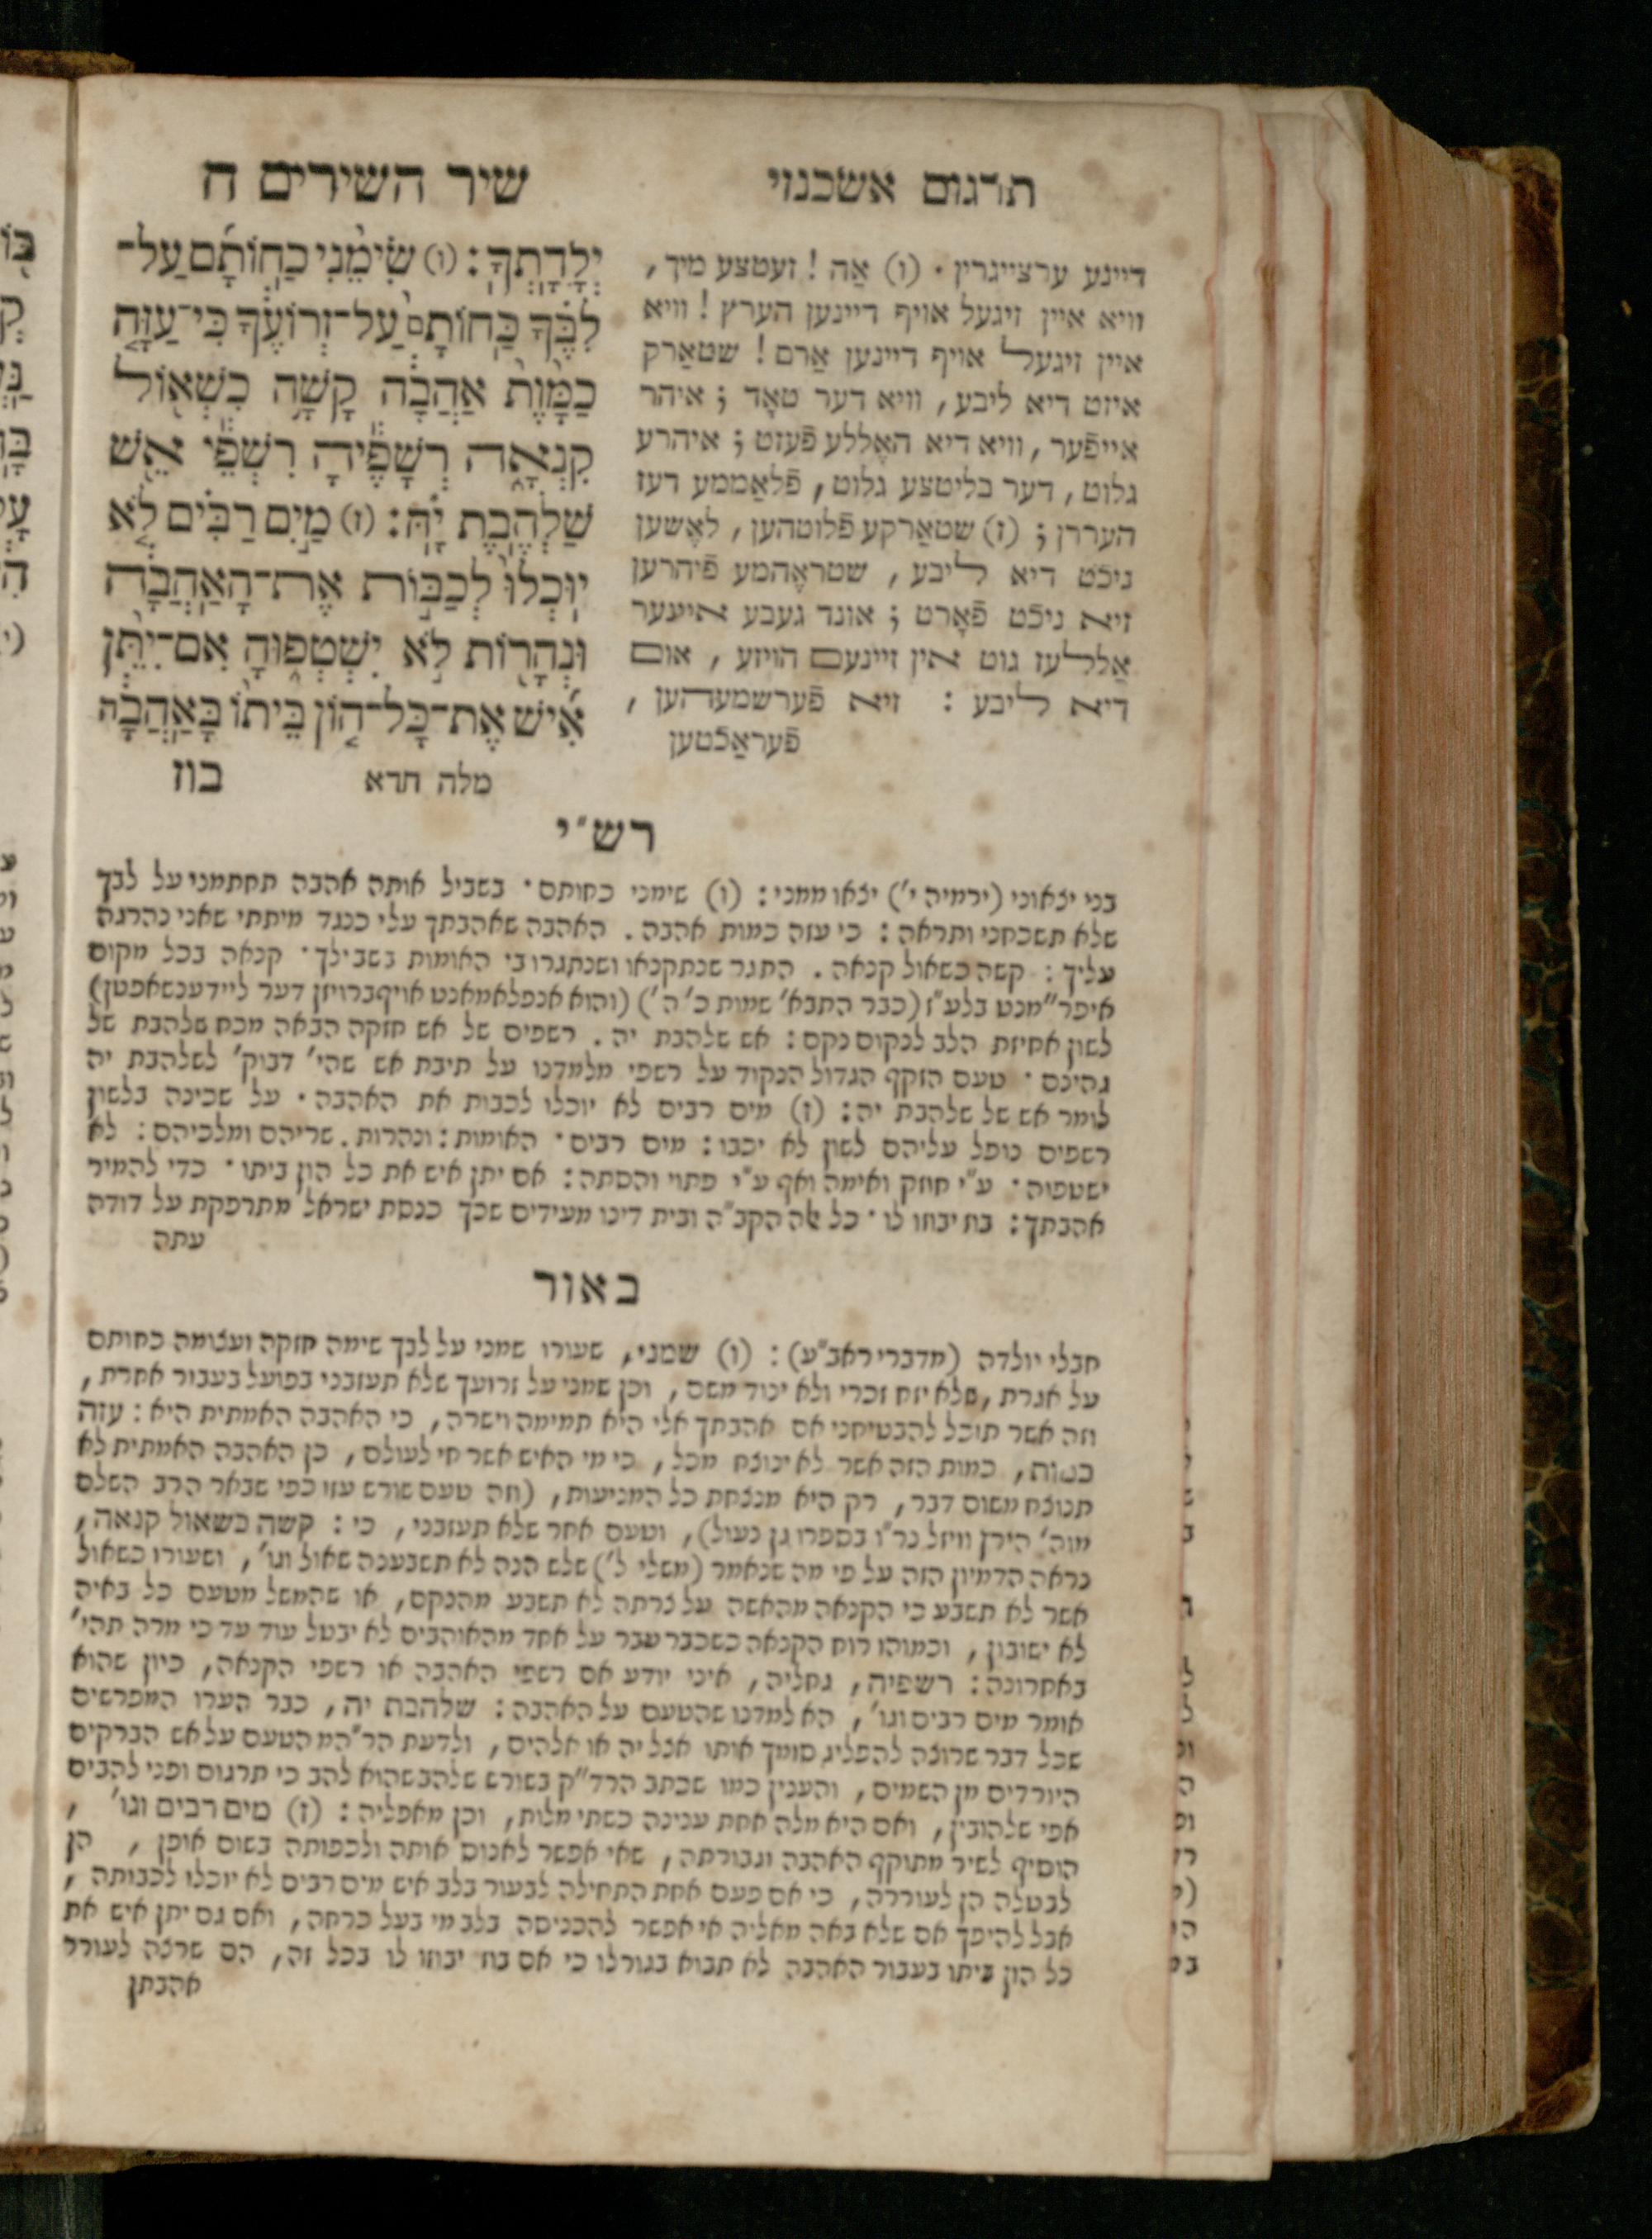 שיר השירים ח
תרגום אשכנזי
יְלָדָֽתְךָ׃ (ו) שִׂימֵ֨נִי כַֽחוֹתָ֜ם עַל־
לִבֶּ֗ךָ כַּֽחוֹתָם֙ עַל־זְרוֹעֶ֔ךָ כִּֽי־עַזָּ֤ה
כַמָּ֙וֶת֙ אַהֲבָ֔ה קָשָׁ֥ה כִשְׁא֖וֹל
קִנְאָ֑ה רְשָׁפֶ֕יהָ רִשְׁפֵּ֕י אֵ֖שׁ
שַׁלְהֶ֥בֶת יָֽהּ׃ (ז) מַ֣יִם רַבִּ֗ים לֹ֤א
יֽוּכְלוּ֙ לְכַבּ֣וֹת אֶת־הָֽאַהֲבָ֔ה
וּנְהָר֖וֹת לֹ֣א יִשְׁטְפ֑וּהָ אִם־יִתֵּ֨ן
אִ֜ישׁ אֶת־כָּל־ה֤וֹן בֵּיתוֹ֙ בָּאַ֣הֲבָ֔ה
מלה חדא
בוז
דיינע ערצייגרין · (ו) אַה ! זעטצע מיך ,
וויא איין זיגעל אויף דיינען הערץ ! וויא
איין זיגעל אויף דיינען אַרם ! שטאַרק
איזט דיא ליבע , וויא דער טאָד ; איהר
אייפֿער , וויא דיא האֶללע פֿעזט ; איהרע
גלוט , דער בליטצע גלוט , פֿלאַממע דעז
העררן ; (ז) שטאַרקע פֿלוטהען , לאֶשען
ניכֿט דיא ליבע , שטראֶהמע פֿיהרען
זיא ניכֿט פֿאָרט ; אונד געבע איינער
אַללעז גוט אין זיינעם הויזע , אום
דיא ליבע : זיא פֿערשמעהען ,
פֿעראַכֿטען
רש״י
בני יצאוני (ירמיה י׳) יצאו ממני : (ו) שימני כחותם · בשביל אותה אהבה תחתמני על לבך
שלא תשכחני ותראה : כי עזה כמות אהבה . האהבה שאהבתך עלי כנגד מיתתי שאני נהרגת
עליך : קשה כשאול קנאה . התגר שנתקנאו ושנתגרו בי האומות בשבילך · קנאה בכל מקום
איפר״מנט בלע״ז (כבר התבא׳ שמות כ׳ ה׳) (והוא אנפלאמאנט אויפברויזן דער ליידענשאפטן)
לשון אחיזת הלב לנקום נקם : אש שלהבת יה . רשפים של אש חזקה הבאה מכח שלהבת של
גהינם · טעם הזקף הגדול הנקוד על רשפי מלמדנו על תיבת אש שהי׳ דבוק׳ לשלהבת יה
לומר אש של שלהבת יה : (ז) מים רבים לא יוכלו לכבות את האהבה · על שכינה בלשון
רשפים נופל עליהם לשון לא יכבו : מים רבים · האומות : ונהרות . שריהם ומלכיהם : לא
ישטפוה · ע״י חוזק ואימה ואף ע״י פתוי והסתה : אם יתן איש את כל הון ביתו · כדי להמיר
אהבתך : בוז יבוזו לו · כל אלה הקב״ה ובית דינו מעידים שכך כנסת ישראל מתרפקת על דודה
עתה
באור
חבלי יולדה (מדברי ראב״ע) : (ו) שמני , שעורו שמני על לבך שימה חזקה ועצומה כחותם
על אגרת , שלא יזח זכרי ולא ינוד משם , וכן שמני על זרועך שלא תעזבני בפועל בעבור אחרת ,
וזה אשר תוכל להבטיחני אם אהבתך אלי היא תמימה וישרה , כי האהבה האמתית היא : עזה
כמות , כמות הזה אשר לא ינוצח מכל , כי מי האיש אשר חי לעולם , כן האהבה האמתית לא
תנוצח משום דבר , רק היא מנצחת כל המניעות , (וזה טעם שורש עזו כפי שבאר הרב השלם
מוה׳ הירץ וויזל נר״ו בספרו גן נעול) , וטעם אחר שלא תעזבני , כי : קשה כשאול קנאה ,
נראה הדמיון הזה על פי מה שנאמר (משלי ל׳) שלש הנה לא תשבענה שאול וגו׳ , ושעורו כשאול
אשר לא תשבע כי הקנאה מהאשה על צרתה לא תשבע מהנקם , או שהמשל מטעם כל באיה
לא ישובון , וכמוהו רוח הקנאה כשכבר עבר על אחד מהאוהבים לא יבטל עוד עד כי מרה תהי׳
באחרונה : רשפיה , גחליה , איני יודע אם רשפי האהבה או רשפי הקנאה , כיון שהוא
אומר מים רבים וגו׳ , הא למדנו שהטעם על האהבה : שלהבת יה , כבר הערו המפרשים
שכל דבר שרוצה להפליג סומך אותו אצל יה או אלהים , ולדעת הר״המ הטעם על אש הברקים
היורדים מן השמים , והענין כמו שכתב הרד״ק בשורש שלהב שהוא להב כי תרגום ופני להבים
אפי שלהובין , ואם היא מלה אחת ענינה כשתי מלות , וכן מאפליה : (ז) מים רבים וגו׳ ,
הוסיף לשיר מתוקף האהבה וגבורתה , שאי אפשר לאנוס אותה ולכפותה בשום אופן , הן
לבטלה הן לעוררה , כי אם פעם אחת התחילה לבעור בלב איש מים רבים לא יוכלו לכבותה ,
אבל להיפך אם שלא באה מאליה אי אפשר להכניסה בלב מי בעל כרחה , ואם גם יתן איש את
כל הון ביתו בעבור האהבה לא תבוא בגורלו כי אם בוז יבוזו לו בכל זה , הם שרצה לעורר
אהבתן